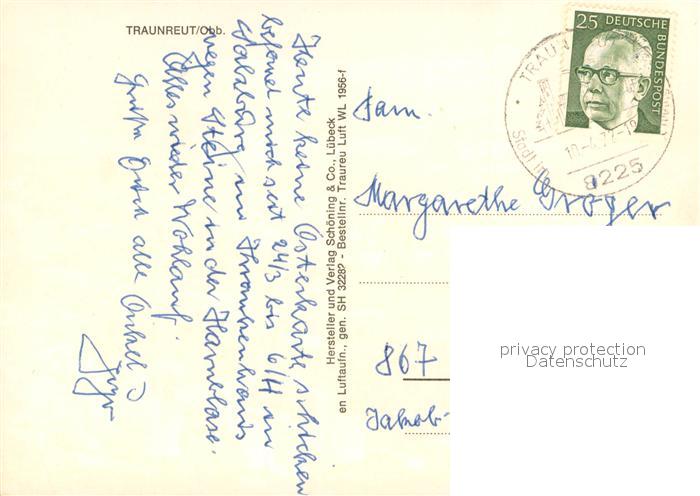 TRAUNREUT/Obb.
Heute keine Osterkarte schicken
befand mich seit 24/3 bis 6/4 im
Salzburg im Krankenhaus
wegen Steine in der Harnblase.
Alles wieder Wohlauf.
Grüße Euch alle
Hersteller und Verlag Schöning & Co., Lübeck
en Luftaufn., gen. SH 3228? - Bestellnr. Traureu Luft WL 1956-f
25 DEUTSCHE BUNDESPOST
8225
Fam.
Margarethe Gröger
867
Jakob-
privacy protection
Datenschutz